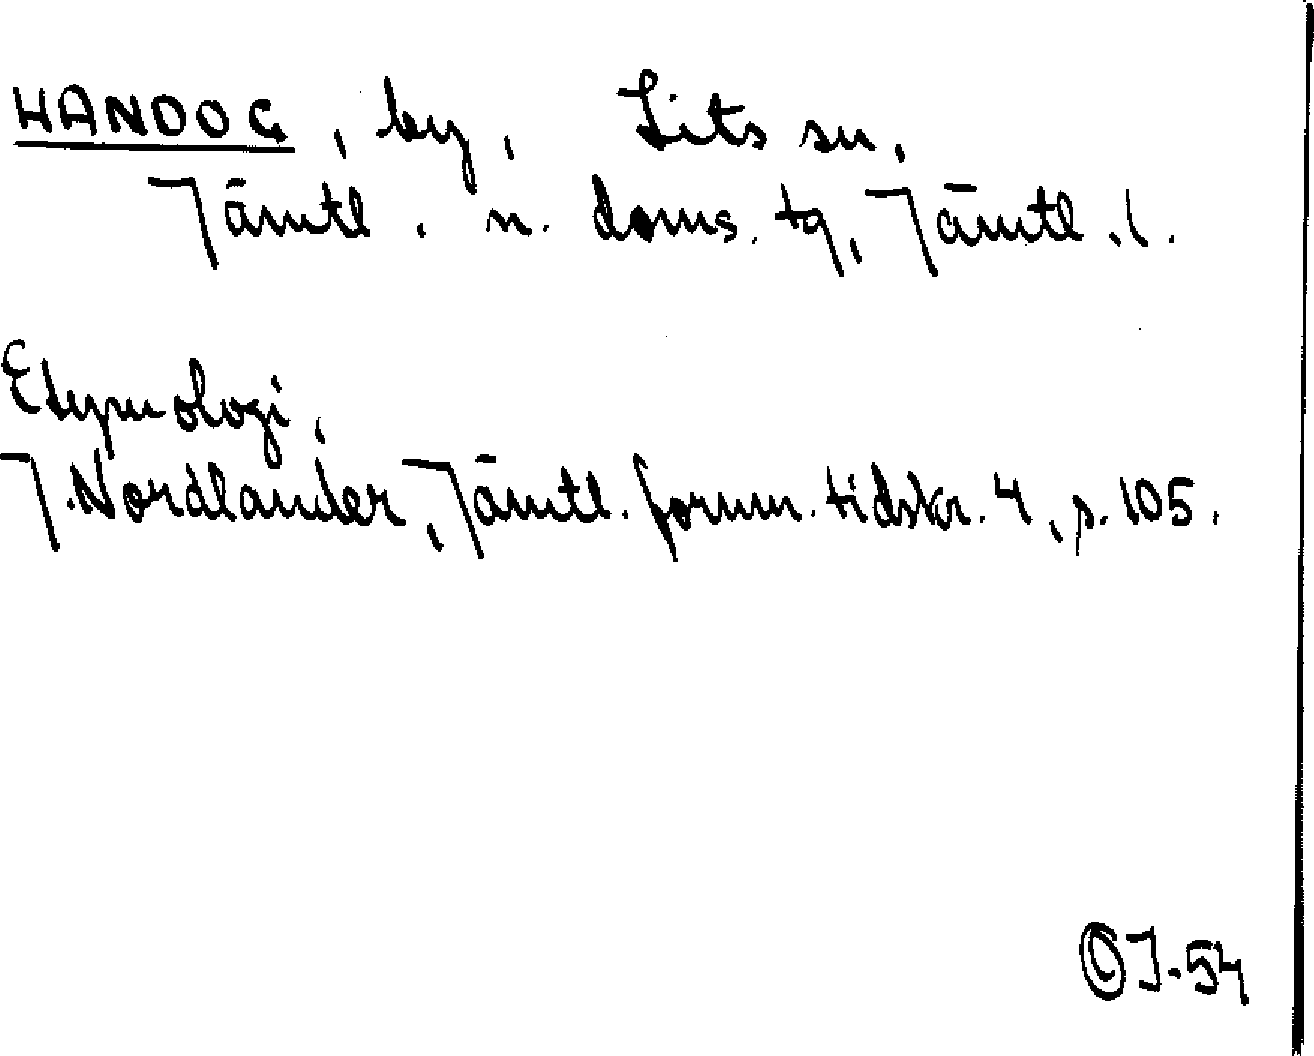 HANDOG, by, Lits sn,
Jämtl. n. doms. tg, Jämtl. l.
Etymologi.
J. Nordlander, Jämtl. fornm. tidskr. 4, s. 105.
OJ-54